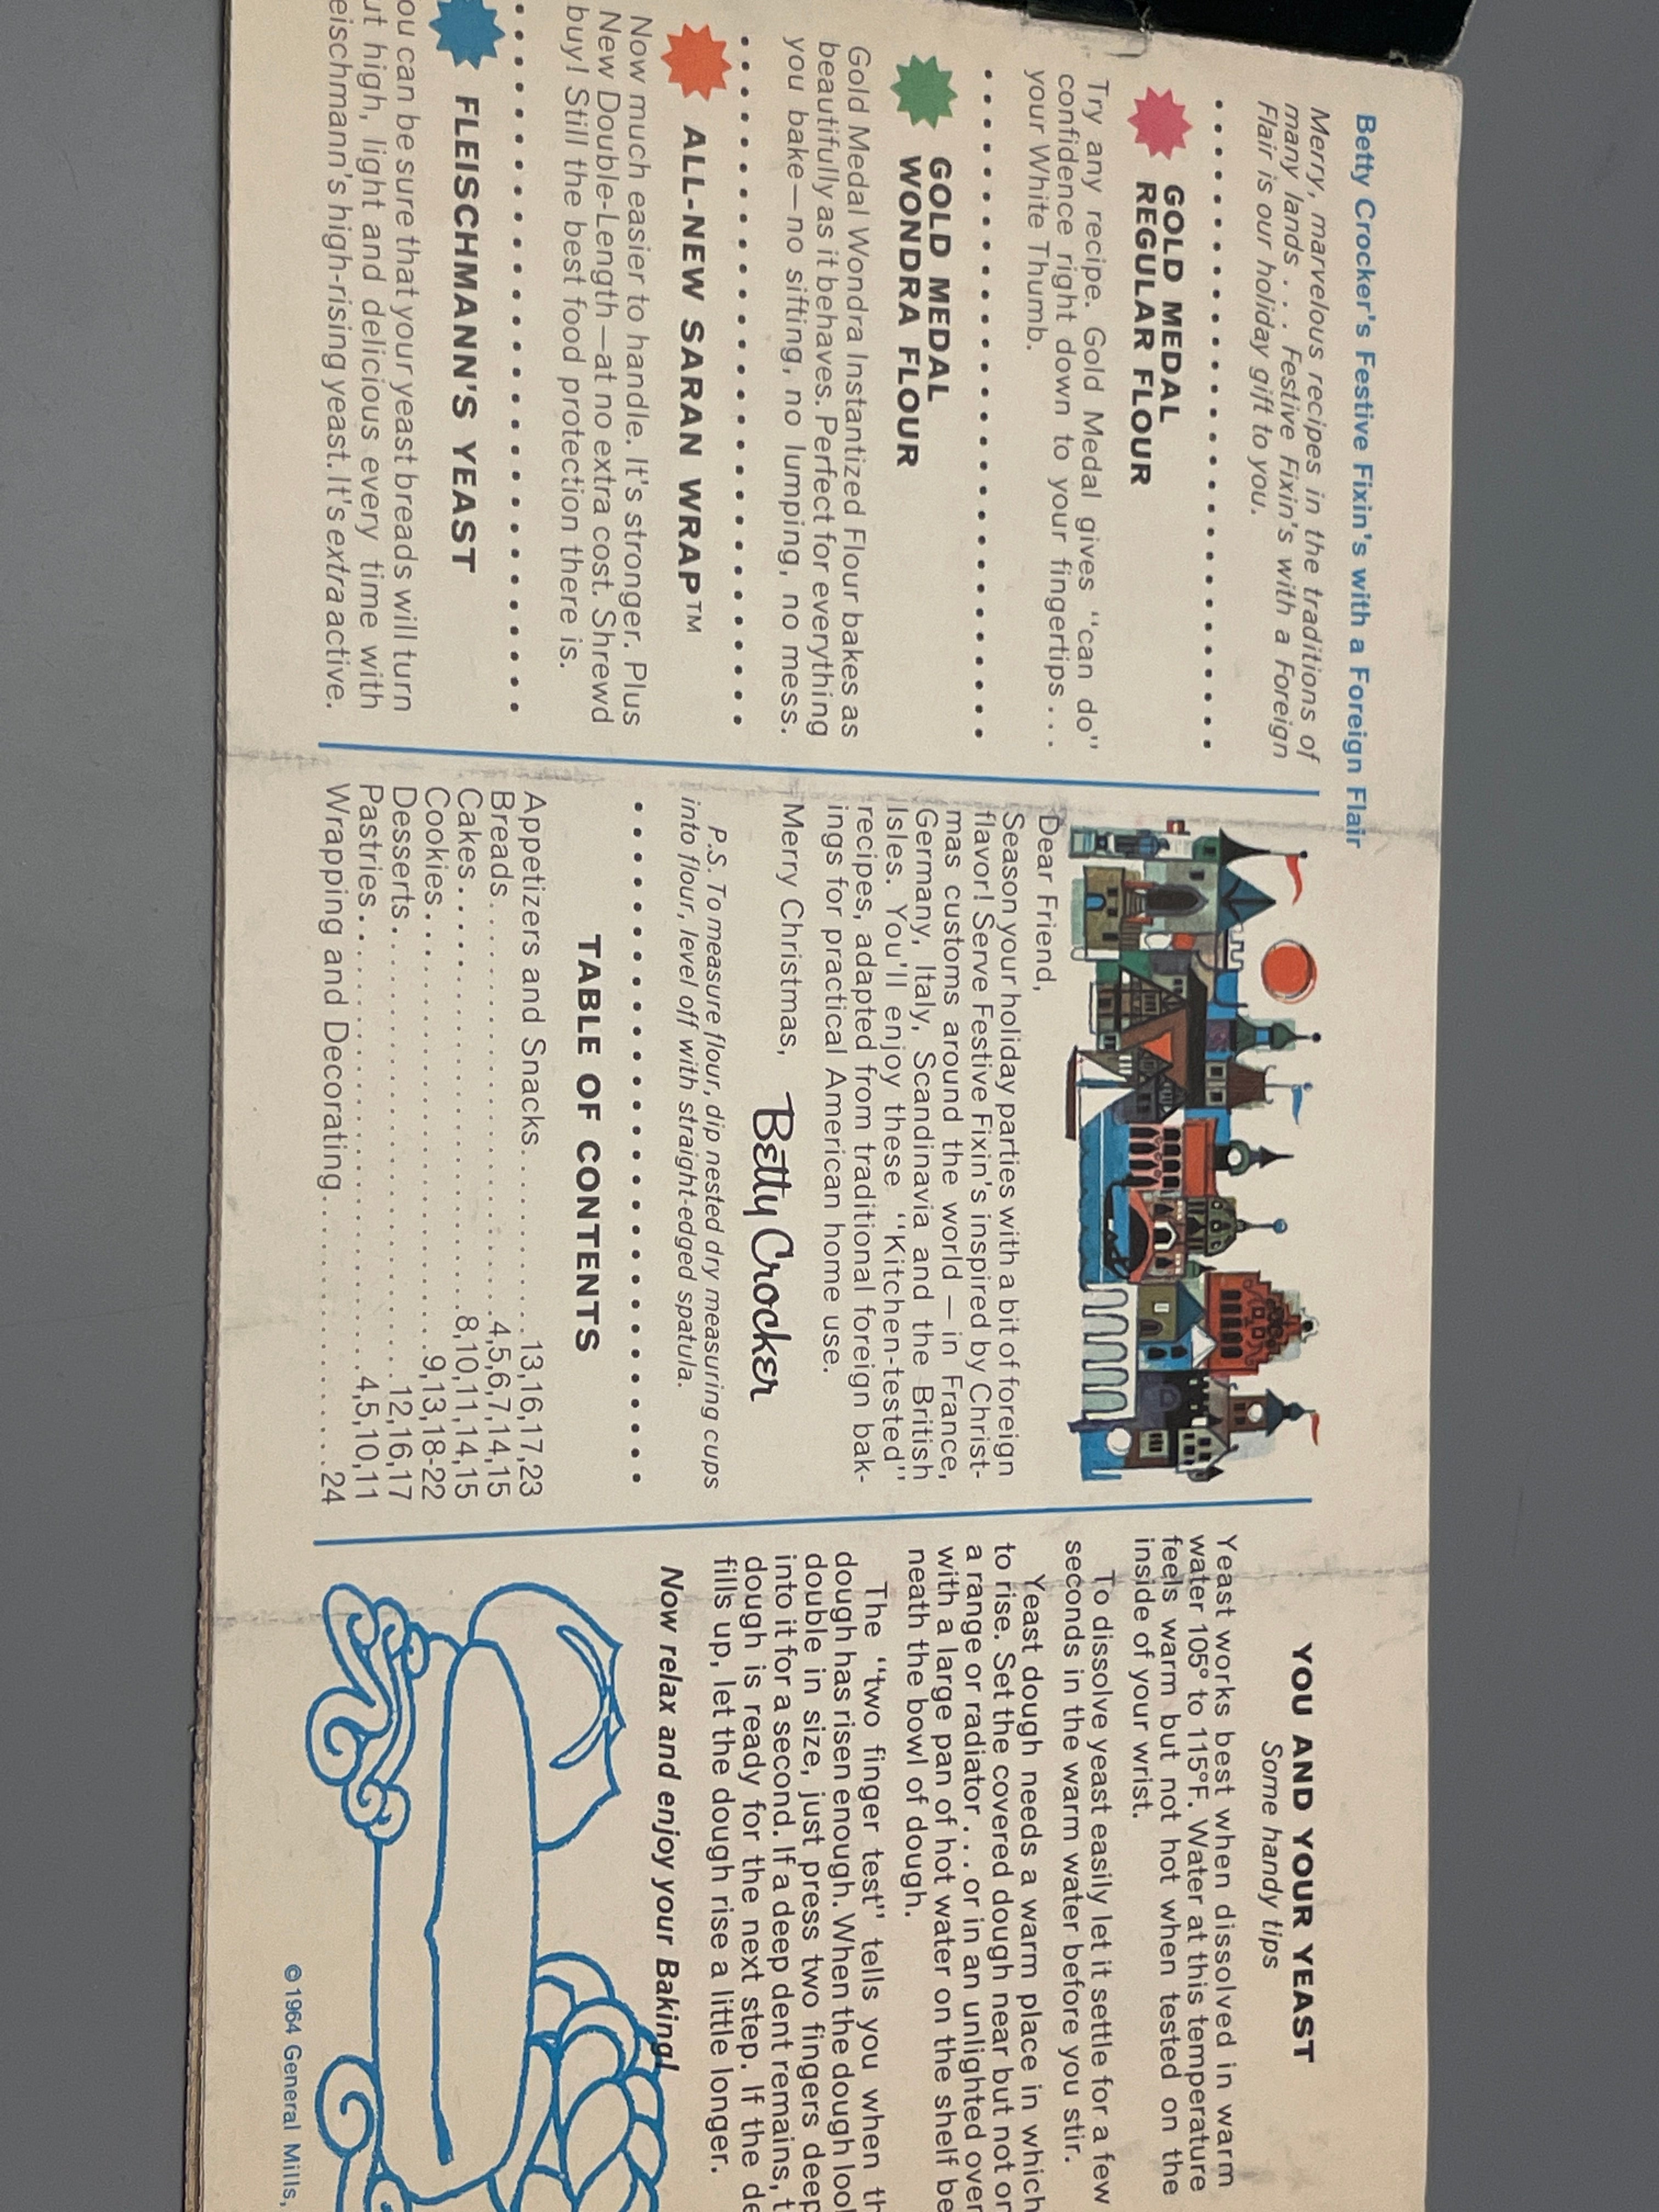 Betty Crocker's Festive Fixin's with a Foreign Flair
Merry, marvelous recipes in the traditions of
many lands . . . Festive Fixin's with a Foreign
Flair is our holiday gift to you.
GOLD MEDAL
REGULAR FLOUR
Try any recipe. Gold Medal gives "can do"
confidence right down to your fingertips . . .
your White Thumb.
GOLD MEDAL
WONDRA FLOUR
Gold Medal Wondra Instantized Flour bakes as
beautifully as it behaves. Perfect for everything
you bake—no sifting, no lumping, no mess.
ALL-NEW SARAN WRAP™
Now much easier to handle. It's stronger. Plus
New Double-Length—at no extra cost. Shrewd
buy! Still the best food protection there is.
FLEISCHMANN'S YEAST
ou can be sure that your yeast breads will turn
ut high, light and delicious every time with
eischmann's high-rising yeast. It's extra active.
Dear Friend,
Season your holiday parties with a bit of foreign
flavor! Serve Festive Fixin's inspired by Christ-
mas customs around the world — in France,
Germany, Italy, Scandinavia and the British
Isles. You'll enjoy these "Kitchen-tested"
recipes, adapted from traditional foreign bak-
ings for practical American home use.
Merry Christmas, Betty Crocker
P.S. To measure flour, dip nested dry measuring cups
into flour, level off with straight-edged spatula.
TABLE OF CONTENTS
Appetizers and Snacks. . . . . . . . . . . . .13,16,17,23
Breads. . . . . . . . . . . . . . . . . . . . . .4,5,6,7,14,15
Cakes. . . . . . . . . . . . . . . . . . . . . .8,10,11,14,15
Cookies. . . . . . . . . . . . . . . . . . . . . . .9,13,18-22
Desserts. . . . . . . . . . . . . . . . . . . . . . .12,16,17
Pastries. . . . . . . . . . . . . . . . . . . . . . .4,5,10,11
Wrapping and Decorating. . . . . . . . . . . . . . . . .24
YOU AND YOUR YEAST
Some handy tips
Yeast works best when dissolved in warm
water 105° to 115°F. Water at this temperature
feels warm but not hot when tested on the
inside of your wrist.
To dissolve yeast easily let it settle for a few
seconds in the warm water before you stir.
Yeast dough needs a warm place in which
to rise. Set the covered dough near but not on
a range or radiator . . . or in an unlighted oven
with a large pan of hot water on the shelf be
neath the bowl of dough.
The "two finger test" tells you when th
dough has risen enough. When the dough look
double in size, just press two fingers deep
into it for a second. If a deep dent remains, t
dough is ready for the next step. If the de
fills up, let the dough rise a little longer.
Now relax and enjoy your Baking!
©1964 General Mills,